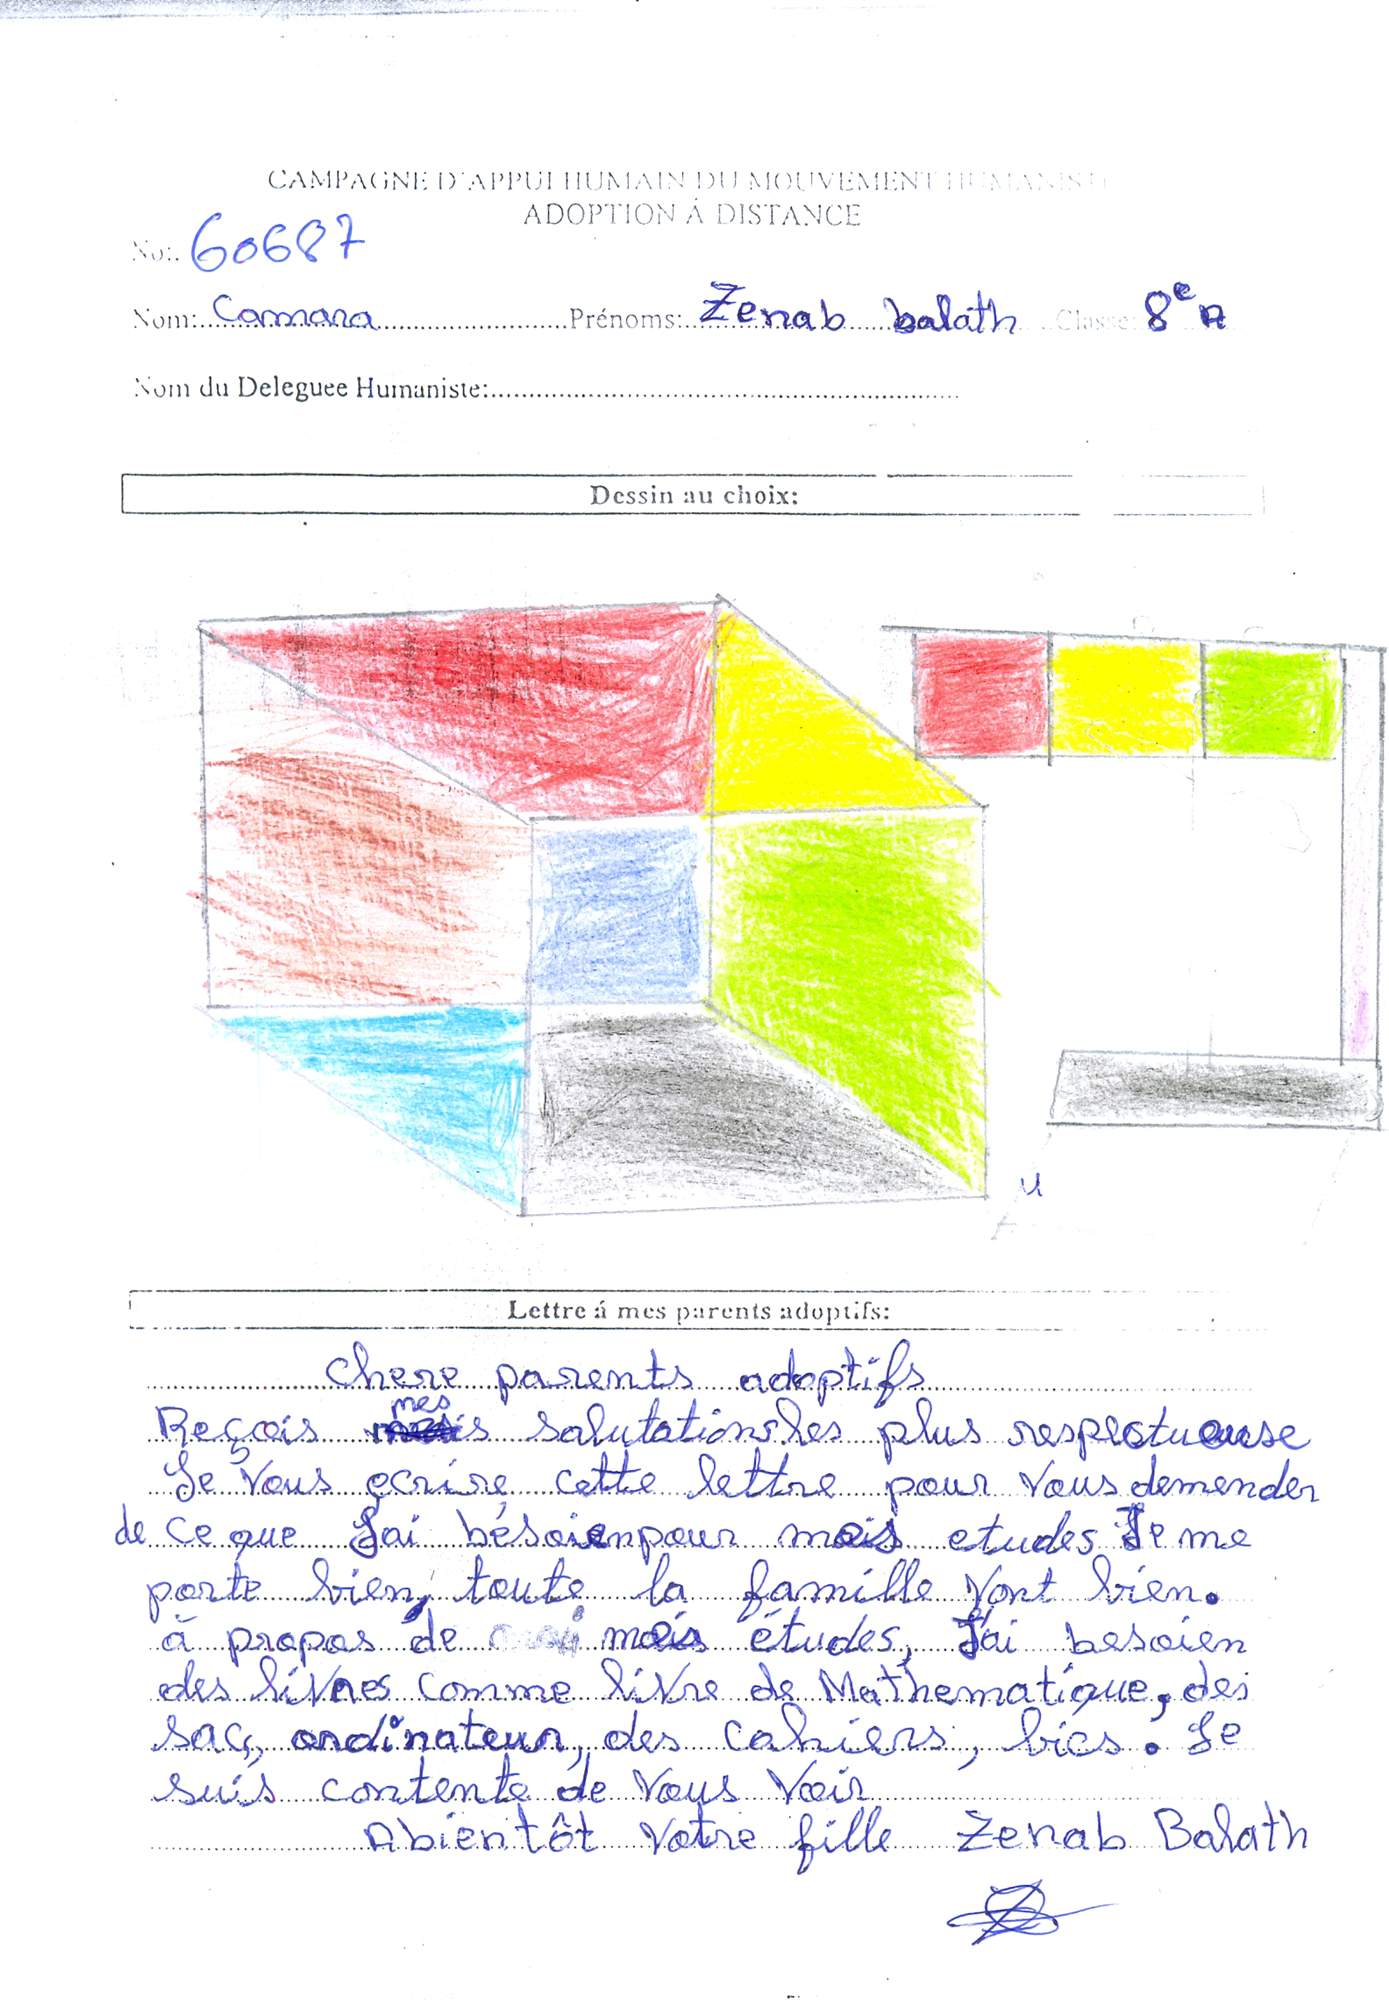 CAMPAGNE D'APPUI HUMAIN DU MOUVEMENT HUMANISTE
ADOPTION Á DISTANCE
No:. 60687
Nom: Camara Prénoms: Zenab balath Classe: 8e A
Nom du Deleguee Humaniste:
Dessin au choix:
Lettre á mes parents adoptifs:
Chere parents adoptifs
mes
Reçois salutations les plus respectueuse
Je vous ecrire cette lettre pour vous demender
de ce que J'ai bésoien pour mais etudes Je me
porte bien, toute la famille vont bien.
à propos de mais études, J'ai besoien
des livres comme livre de Mathematique, des
sac, ordinateur, des cahiers, bics. Je
suis contente de vous voir
Abientôt votre fille Zenab Balath